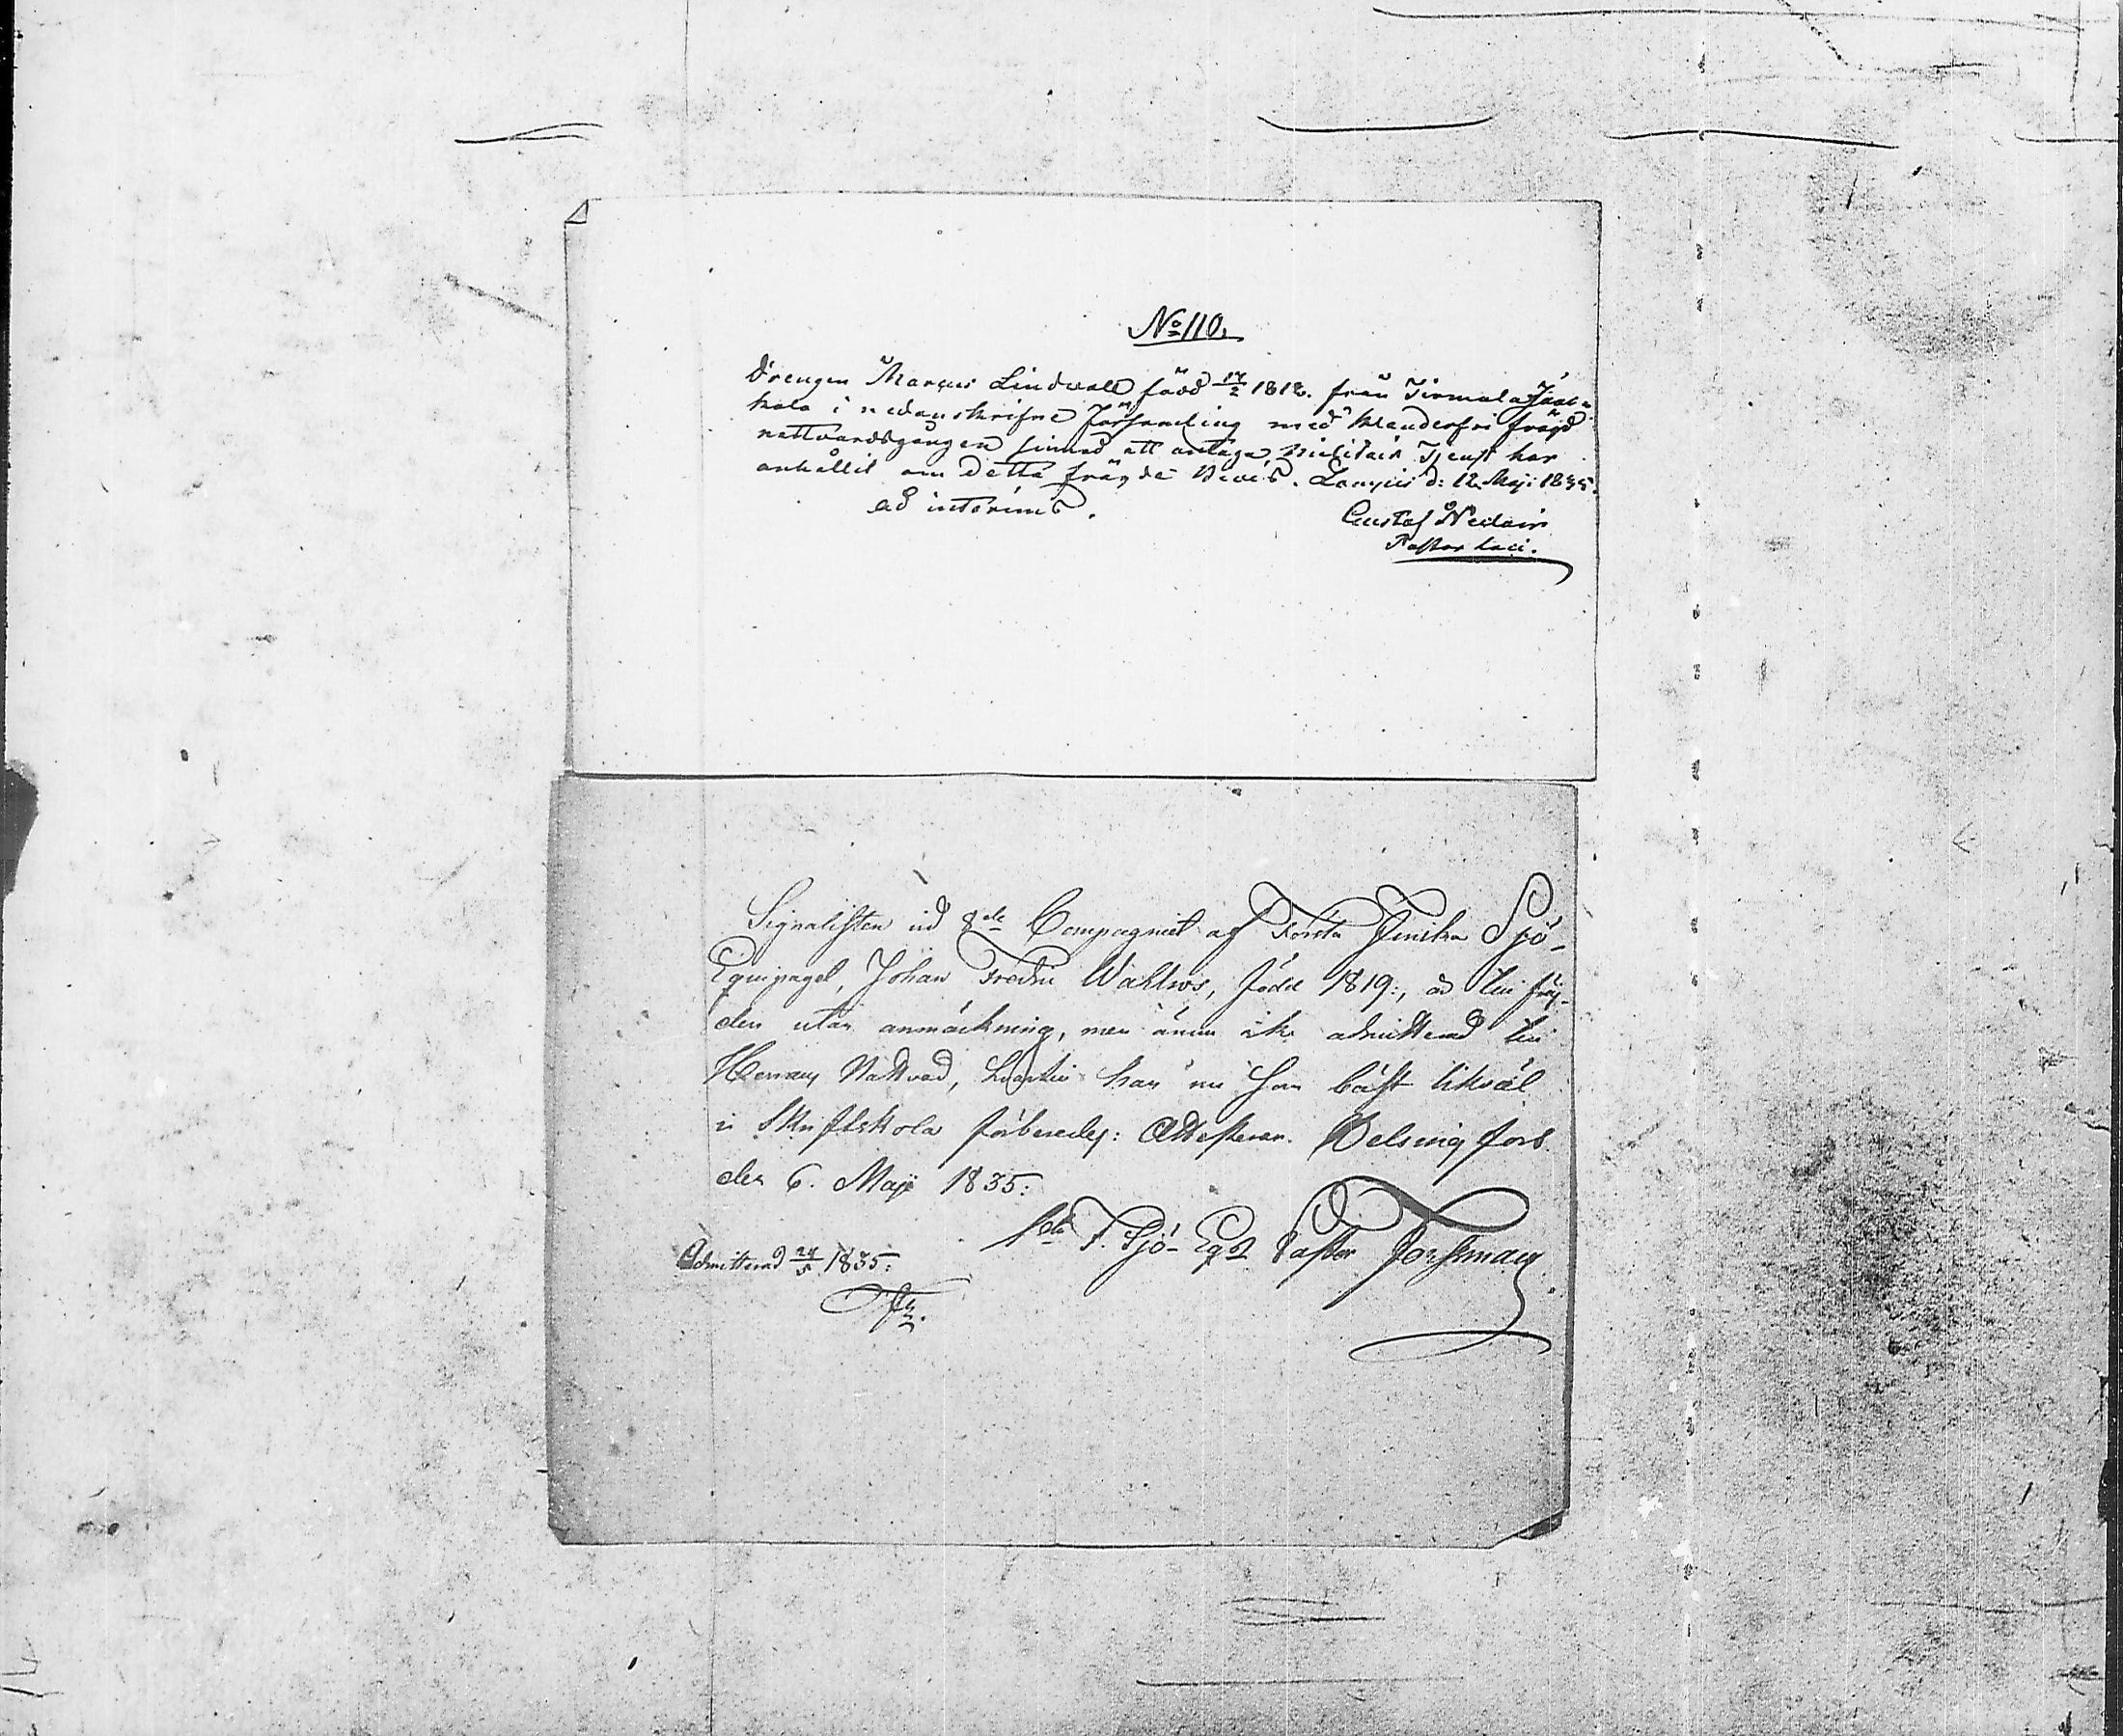 No 110.
Drengen Marcus Lindvall född 17/2 1812. från Tirmula Jaak-
kola i nedanskrifne församling med klanderfri frägd
nattvardsgången sinnad att antaga Militair Tjenst har
anhållit om detta frägde Bevis. Lampis d: 12 Maji 1835.
ad interims.
Gustaf
Pastor loci.
Signalisten vid 8de Compagniet af Första Finska Sjö-
Equipaget, Johan Fredric Wahlros, född 1819:, är till fräg-
den utan anmärkning, men ännu icke admitterad till
Herrans Nattvard, hvartill han nu som bäst likväl
i Skriftskola förberedes: Attesterar. Helsingfors
den 6. Maji 1835:
1sta F. Sjö- Eqp. Pastor Forssman
Admitterad 24/5 1835: